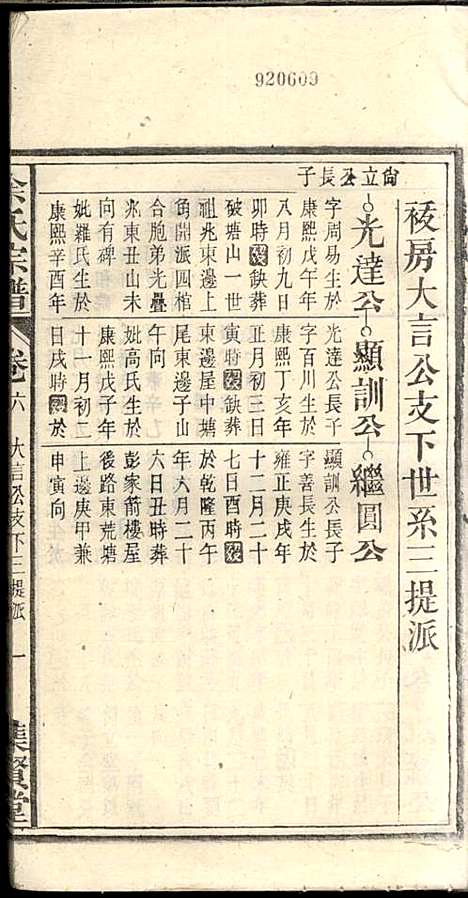 920609
被房大言公支下世系三提派
尙立公長子
光達公
顯訓公
繼圓公
字周易生於
康熙戊午年
八月初九日
卯時歿缺葬
破塘山一世
祖兆東邊上
角開派四棺
合胞弟光疊
兆東丑山未
向有碑
妣羅氏生於
康熙辛酉年
光達公長子
字百川生於
康熙丁亥年
正月初三日
寅時歿缺葬
東邊屋中塘
尾東邊子山
午向
妣高氏生於
康熙戊子年
十一月初二
日戌時歿於
顯訓公長子
字善長生於
雍正庚戌年
十二月二十
七日酉時歿
於乾隆丙午
年六月二十
六日丑時葬
彭家箭樓屋
後路東荒塘
上邊庚甲兼
申寅向
余氏宗譜
卷六
大言公支下三提派
一
集賢堂